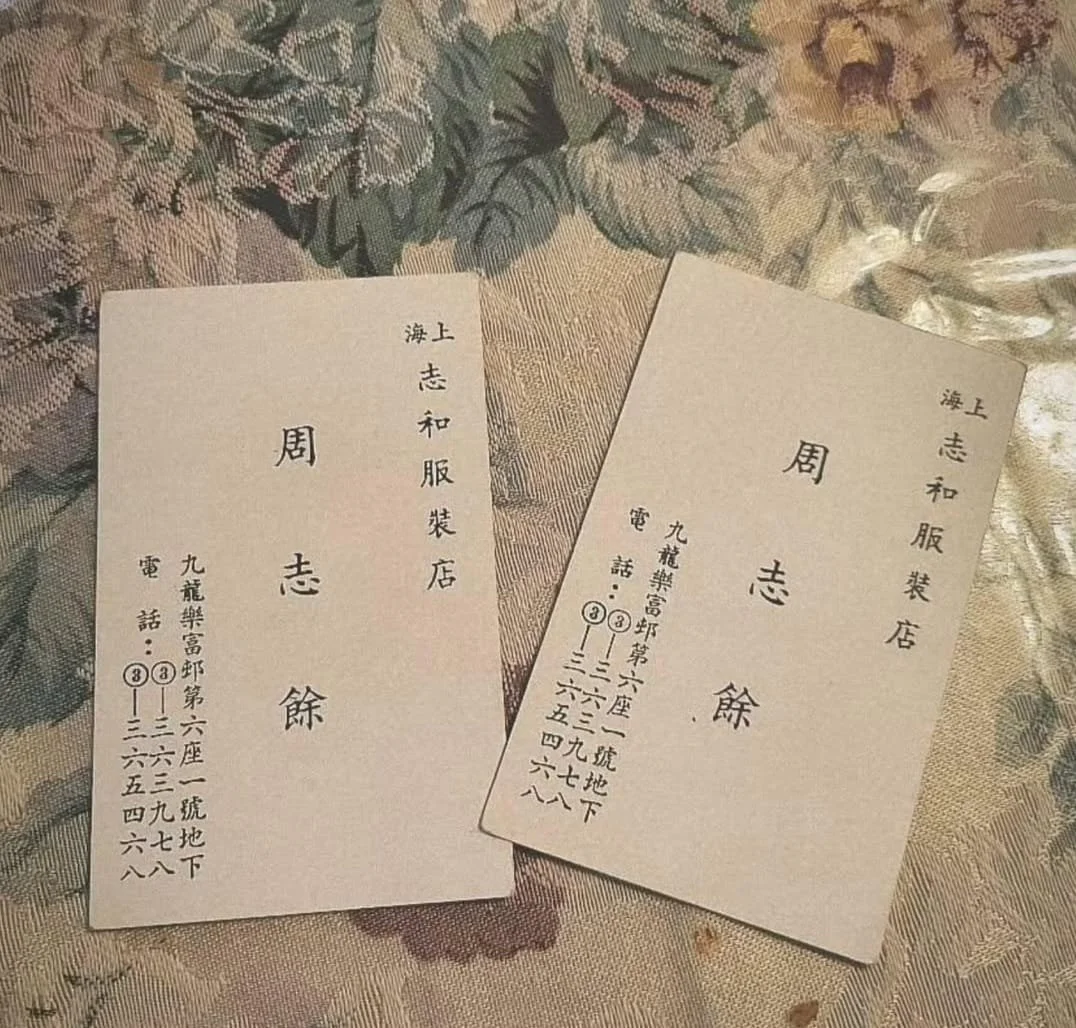 上海志和服裝店
周志餘
九龍樂富邨第六座一號地下
電話：③—三六三九七八
③—三六五四六八
上海志和服裝店
周志餘
九龍樂富邨第六座一號地下
電話：③—三六三九七八
③—三六五四六八